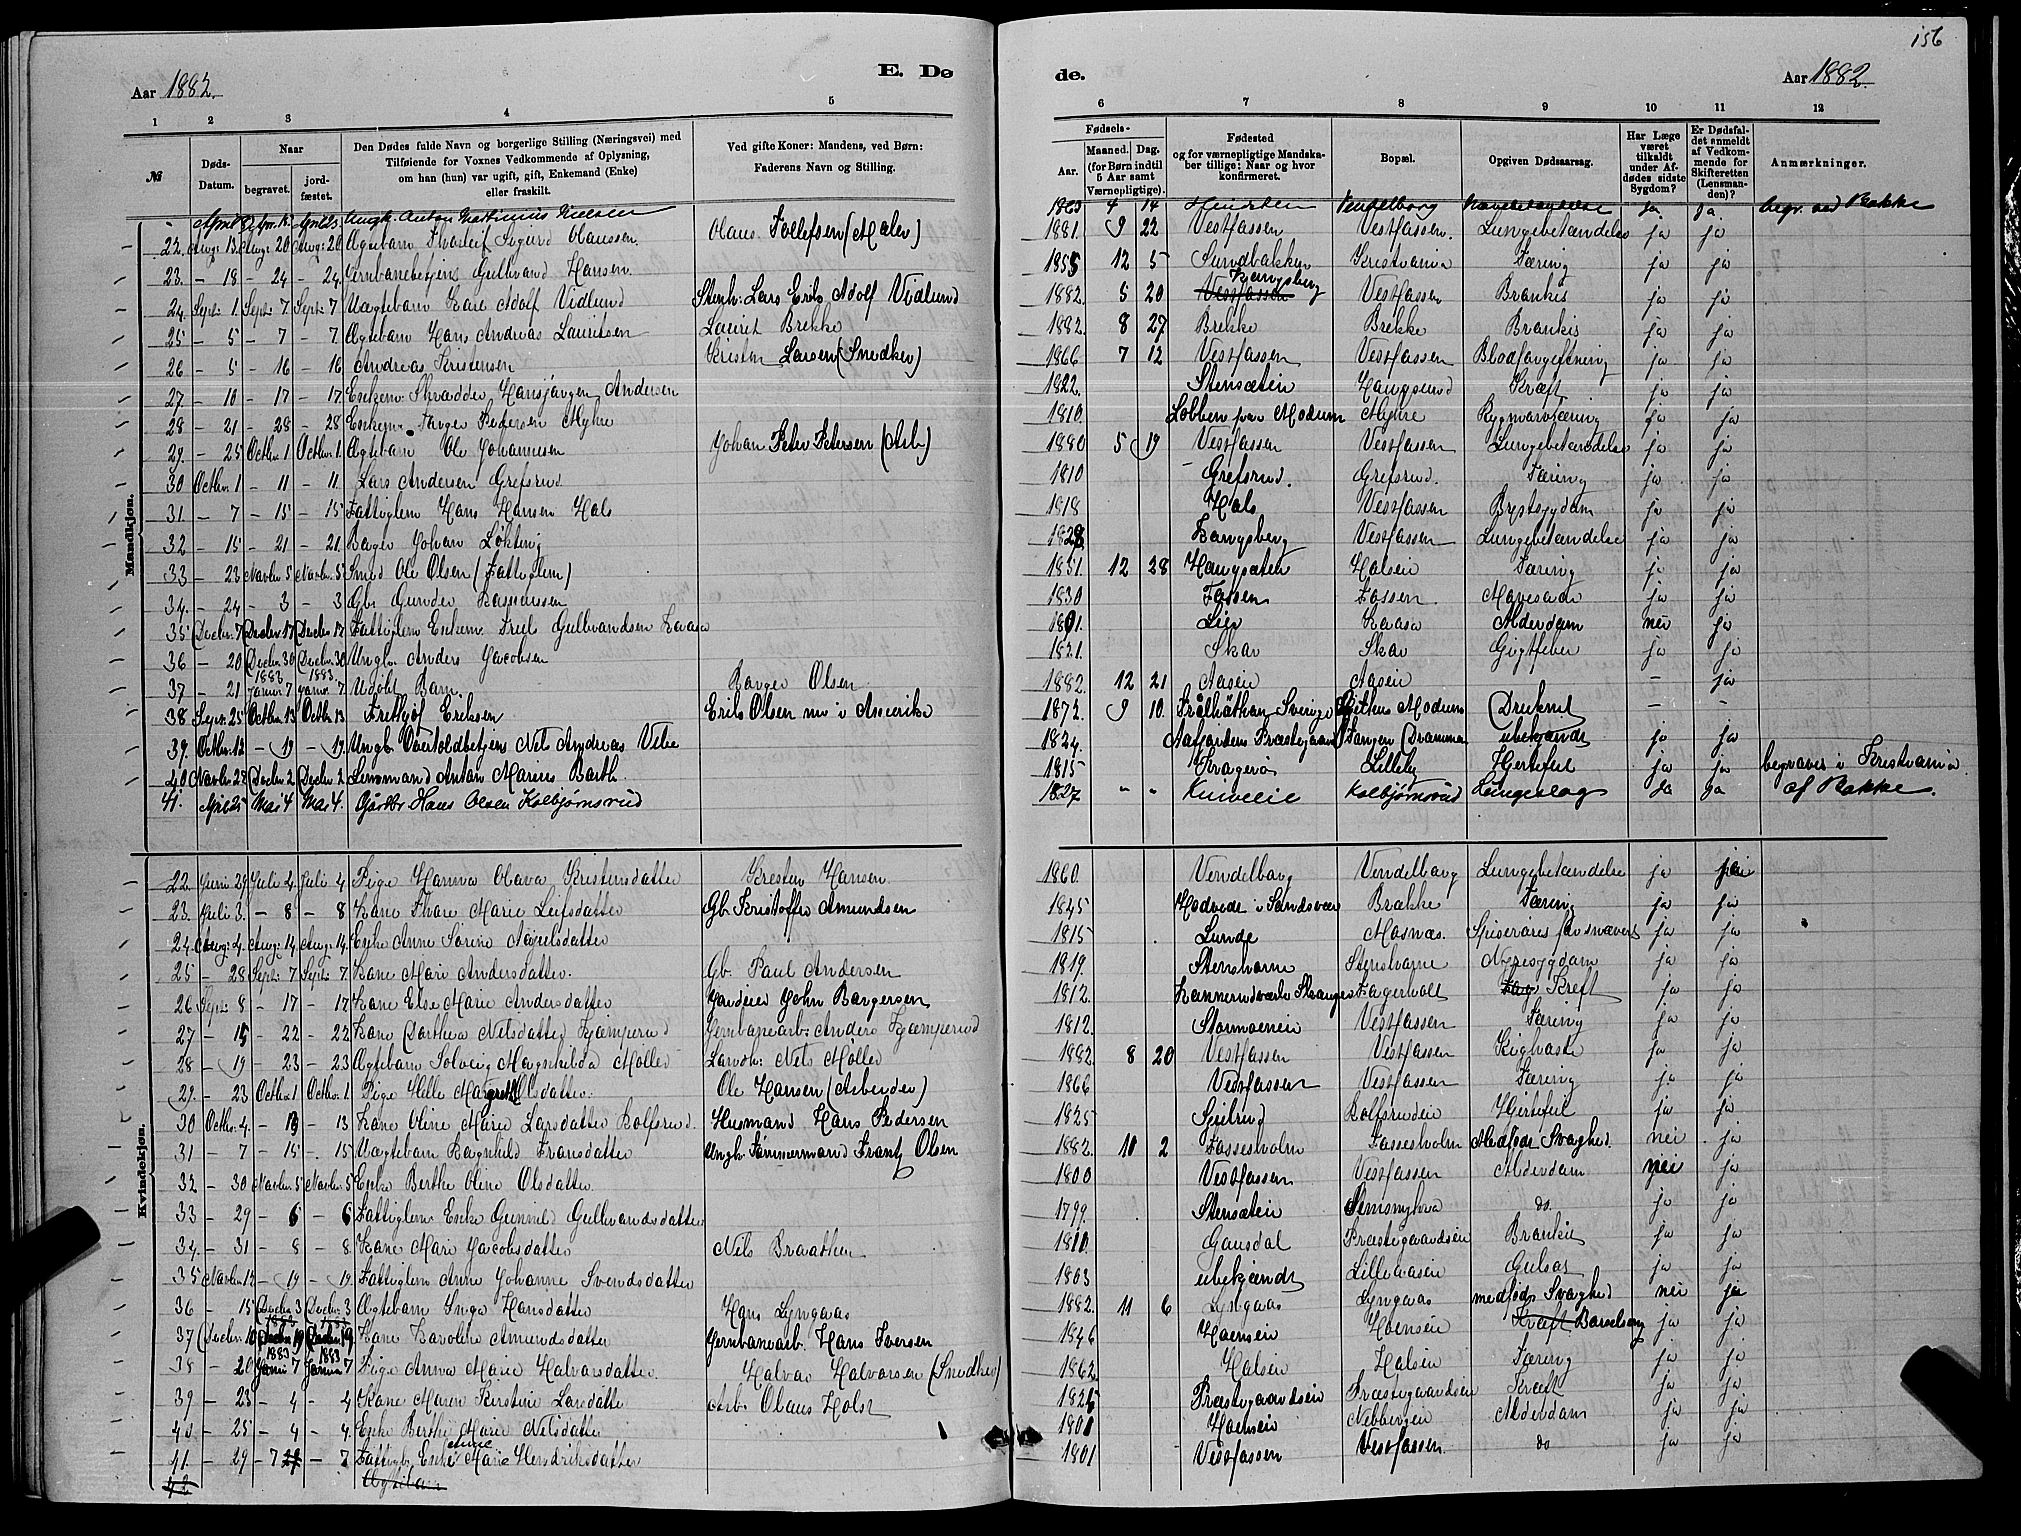 156
Aar 1882. E. Dø de. Aar 1882.
1 2 3 4 5 6 7 8 9 10 11 12
№ Døds-Datum. Naar begravet. jord-fæstet. Den Dødes fulde Navn og borgerlige Stilling (Næringsvei) med Tilføiende for Voxnes Vedkommende af Oplysning, om han (hun) var ugift, gift, Enkemand (Enke) eller fraskilt. Ved gifte Koner: Mandens, ved Børn: Faderens Navn og Stilling. Fødsels- Aar. Maaned. Dag. (for Børn indtil 5 Aar samt Værnepligtige). Fødested og for værnepligtige Mandskaber tillige: Naar og hvor konfirmeret. Bopæl. Opgiven Dødsaarsag. Har Læge været tilkaldt under Afdødes sidste Sygdom? Er Dødsfaldet anmeldt af Vedkommende for Skifteretten (Lensmanden)? Anmærkninger.
Mandkjøn.
Ungk. Anton Mathinius Nielsen 1863 4 14 ja ja begr. ved Bakke
22. Aug. 13 Aug. 20 Aug. 20 Ægtebarn Thorleif Sigurd Olaussen. Olaus Tollefsen (Maler) 1881. 9 22 Vestfossen Vestfossen. Lungebetændelse ja ja
23. - 18 - 24 - 24. Jernbanebetjent Gulbrand Hansen. 1855 12 5 Sundbakken Kristiania Tæring ja ja
24 Septr. 1. Septr. 7 Septr. 7 Uægtebarn Karl Adolf Vidlund Stenh. Lars Erik Adolf Vidlund 1882. 5 20 Vestfossen Kongsberg Vestfossen Brankis ja ja
25 - 5 - 7 - 7. Ægtebarn Hans Andreas Lauritsen Laurits Brekke 1882. 8 27 Brekke Brekke Brankis ja ja
26 - 5 - 16 - 16 Andreas Kristensen Kristen Larsen (Snedker) 1866 7 12 Vestfossen Vestfossen Blodforgiftning ja ja
27. - 10 - 17 - 17 Enkem. Skrædder Hansjørgen Andersen 1822. Stensætein Kræft ja ja
28 - 21 - 28 - 28 Enkem. Pedersen Myhre 1810. Lobben paa Modum Myhre Rygmarvtæring ja ja
29. - 25 Octbr. 1 Octbr. 1. Ægtebarn Ole Johannesen Johan Peter Petersen (Arb) 1880 5 19 Vestfossen Vestfossen Lungebetændelse ja ja
30 Octbr. 1 - 11 - 11. Lars Andersen Grefsrud 1810 Grefsrud. Grefsrud. Tæring ja ja
31. - 7 - 15 - 15 Fattiglem Hans Hansen Hals 1818 Hals Vestfossen Brystsygdom ja ja
32 - 15 - 21 - 21. Bager Johan Løkting 1828 Kongsberg Vestfossen Lungebetændelse ja ja
33 - 23 Novbr. 5 Novbr. 5 Smed Ole Olsen (Fattiglem) 1851. 12 28 Tæring ja ja
34. - 24 - 3 - 3 Gbr. Gunder Rasmussen 1830 Fossen Fossen ja ja
35 Decbr. 7 Decbr. 17 Decbr. 17 Fattiglem Enkem. Gulbrandsen 1801. Lier Alderdom nei ja
36 - 20 Decbr. 30 Decbr. 30 Ungk. Anders Jacobsen 1821. Skar Skar Gigtfeber ja ja
37 - 21 1883 Januar 7 1883 Januar 7 Udøbt Barn. Borger Olsen 1882. 12 21 Aasein Aasein - ja
38 Septr. 25 Octbr. 13 Octbr. 13 Fritjof Eriksen Erik Olsen nu i Amerika 1872. 9 10. Trolhättan Sverige Modum Druknet - -
39. Octbr. 12 - 19 - 19. Ungk. Overtoldbetjent Nils Andreas Vibe 1824. Aafjordens Præstegjæld Tangen Drammen ubekjendt ja ja
40 Novbr. 28 Decbr. 2 Decbr. 2 Lensmand Anton Marius Barth. 1815 Kragerø Lilleby Hjertefeil ja ja begraves i Kristiania
41. April 25 Mai 4 Mai 4. Gårdbr Hans Olsen Kolbjørnsrud 1827 " " Kolbjørnsrud Lungeslag Ja Ja af Bakke.
Kvindekjøn.
22. Juni 29 Juli 4 Juli 4 Pige Hanna Olava Kristensdatter Kristen Hansen 1860. Vendelborg Vendelborg Lungebetændelse ja ja
23. Juli 3. - 8 - 8 Kone Thore Marie Leifsdatter Gb. Kristoffer Amundsen 1845 Hedvede i Sandsvær Brække Tæring ja ja
24. Aug. 4. Aug. 14 Aug. 14. Enke Anne Sørine Axelsdatter 1815 Lunde Masnæs. Spiserørets ja ja
25 - 28 Septr. 7 Septr. 7. Kone Mari Andersdatter. Gb. Paul Andersen 1819. Stenshorne Stenshorne Nyresygdom ja ja
26 Septr. 8 - 17 - 17 Kone Else Marie Andersdatter Gaardeier John Borgersen 1812. Fagerholt Kreft ja ja
27 - 15 - 22 - 22 Kone Dorthea Nilsdatter Kjæmperud Jernbanearb. Anders Kjæmperud 1812. Vestfossen Tæring ja ja
28 - 19 - 23 - 23 Ægtebarn Solveig Magnhilda Møller Nils Møller 1882 8 20 Vestfossen Vestfossen Kighoste ja ja
29. - 23 Octbr. 1 Octbr. 1. Pige Hille Margrethe Olsdatter. Ole Hansen (Arbeider) 1866 Vestfossen Vestfossen Tæring ja ja
30 Octbr. 4. - 13 - 13 Kone Oline Marie Larsdatter Rolfsrud. Husmand Hans Pedersen 1825 Rolfsrudein Hjertefeil ja ja
31 - 7 - 15 - 15 Uægtebarn Ragnhild Fransdatter Ungk. Tømmermand Frantz Olsen 1882. 10 2 Fossesholm Fossesholm Medfødt Svaghed. nei ja
32 - 30 Novbr. 5 Novbr. 5 Enke Berthe Oline Olsdatter. 1800 Vestfossen Vestfossen Alderdom nei ja
33 - 29 - 6 - 6 Fattiglem Enke Gunnild Gulbrandsdatter 1799. Stensætein do. ja ja
34. - 31 - 8 - 8. Kone Mari Jacobsdatter Nils Braathen 1810. Gausdal Præstegaardseien ja ja
35 Novbr. 12 - 19 - 19. Fattiglem Anne Johanne Svendsdatter 1863 ubekjendt Lilleaasein Gulsot ja ja
36 - 15 Decbr. 3 Decbr. 3 Ægtebarn Inga Hansdatter Hans Lyngaas 1882. 11 6 Lyngaas Lyngaas medfødt Svaghed nei ja
37 Decbr. 10 Decbr. 19 Decbr. 19 Kone Karoline Amundsdatter Jernbanearb. Hans Iversen 1846 Hoensein Hoensein Kræft Barselseng ja ja
38 - 20 1883 Januar 7 1883 Januar 7 Pige Anna Marie Halvorsdatter. Halvor Halvorsen (Snedker) 1862 Halsein Halsein Tæring ja ja
39 - 23 - 4 - 4 Kone Maren Kirstine Larsdatter Arb. Olaus Holst 1826 Præstegaardseien Præstegaardseien Kræft ja ja
40 - 25 - 4 - 4. Enke Berthe Marie Nilsdatter 1801 Hoensein Alderdom ja ja
41. - 29 - 7 - 7 Fattiglem Enke Anne Marie Hendriksdatter 1801 Vestfossen Vestfossen. do ja ja
42 Ægtebarn